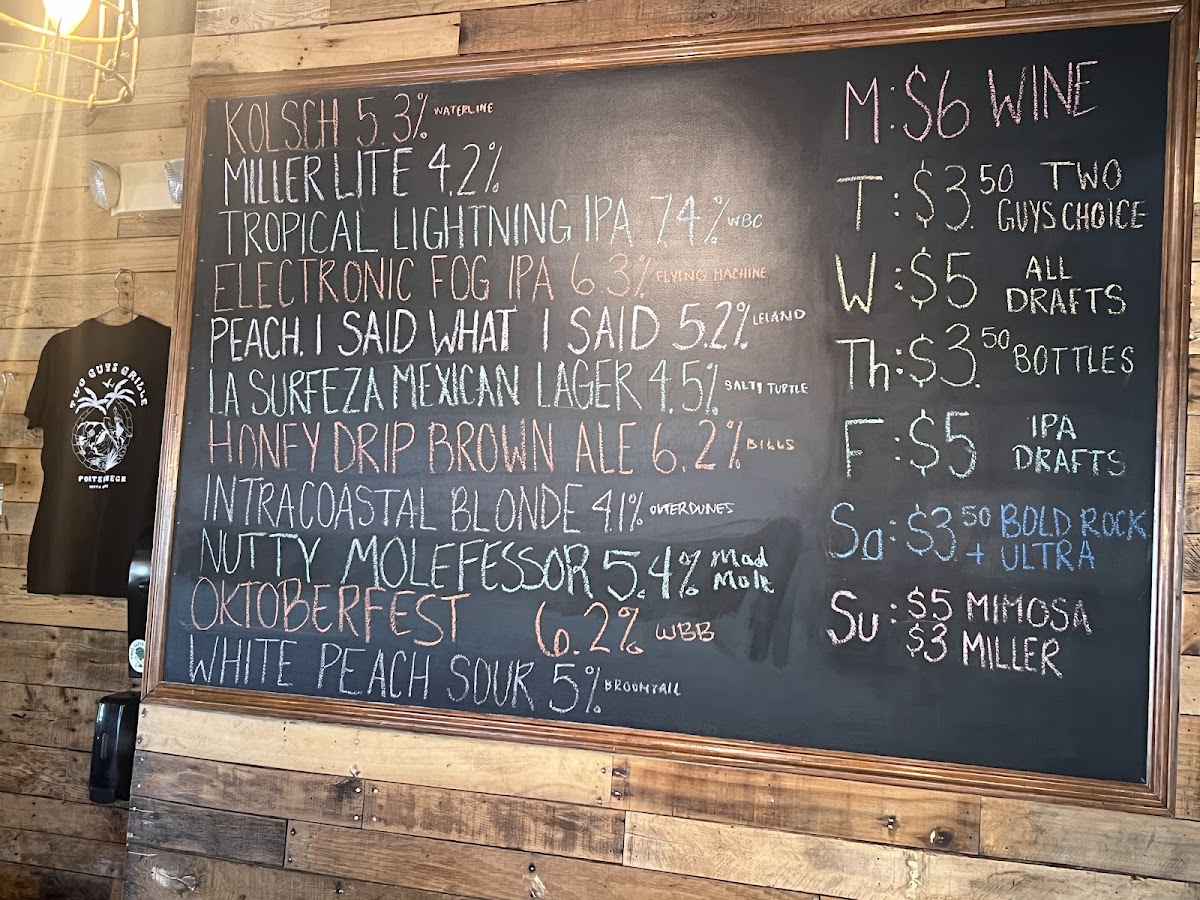 KOLSCH 5.3% WATERLINE
MILLER LITE 4.2%
TROPICAL LIGHTNING IPA 7.4% WBC
ELECTRONIC FOG IPA 6.3% FLYING MACHINE
PEACH. I SAID WHAT I SAID 5.2% LELAND
LA SURFEZA MEXICAN LAGER 4.5% SALTY TURTLE
HONEY DRIP BROWN ALE 6.2% BILLS
INTRACOASTAL BLONDE 4.1% OUTERDUNES
NUTTY MOLEFESSOR 5.4% Mad Mole
OKTOBERFEST 6.2% WBB
WHITE PEACH SOUR 5% BROOMTAIL
M: $6 WINE
T: $3.50 TWO
GUYS CHOICE
W: $5 ALL
DRAFTS
Th: $3.50 BOTTLES
F: $5 IPA
DRAFTS
Sa: $3.50 BOLD ROCK
+ ULTRA
Su: $5 MIMOSA
$3 MILLER
TWO GUYS GRILLE